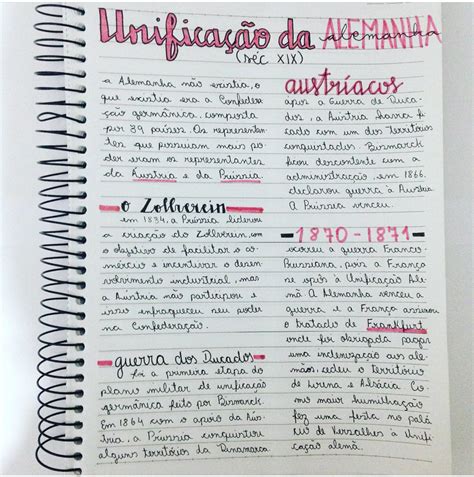 Unificação da ALEMANHA
alemanha
(séc XIX)
a Alemanha não existia, o
que existia era a Confeder
ação germânica, composta
por 39 países. Os represen
tantes que possuiam mais po
der eram os representantes
da Áustria e da Prússia.
o Zollverein
em 1834, a Prússia liderou
a criação do Zollverein, com
o objetivo de facilitar o co
mércio e incentivar o desen
volvimento industrial, mas
a Áustria não participou e
isso enfraqueceu seu poder
na Confederação.
guerra dos Ducados
foi a primeira etapa do
plano militar de unificação
germânica feito por Bismarck.
Em 1864 com o apoio da Áus
tria, a Prússia conquistou
alguns territórios da Dinamarca
austríacos
após a Guerra de Duca
dos, a Áustria havia fi
cado com um dos territórios
conquistados. Bismarck
ficou descontente com a
administração e em 1866,
declarou guerra à Áustria
A Prússia venceu.
1870 - 1871
ocorreu a guerra Franco
Prussiana, pois a França
se opôs à Unificação Ale
mã. A Alemanha venceu a
guerra e a França assinou
o tratado de Frankfurt
onde foi obrigada pagar
uma indenização aos ale
mães, cedeu o território
de Lorena e Alsácia. Co
mo maior humilhação
fez uma festa no palá
cio de Versalhes à Unifi
cação alemã.